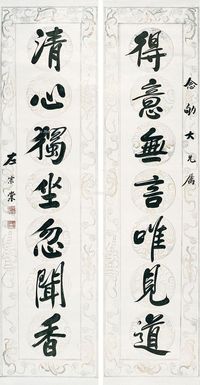 念劬大兄屬
得意無言唯見道
清心獨坐忽聞香
左宗棠